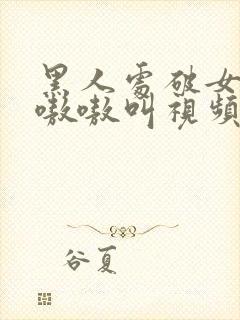 黑人處破女
嗷嗷叫視頻
谷夏